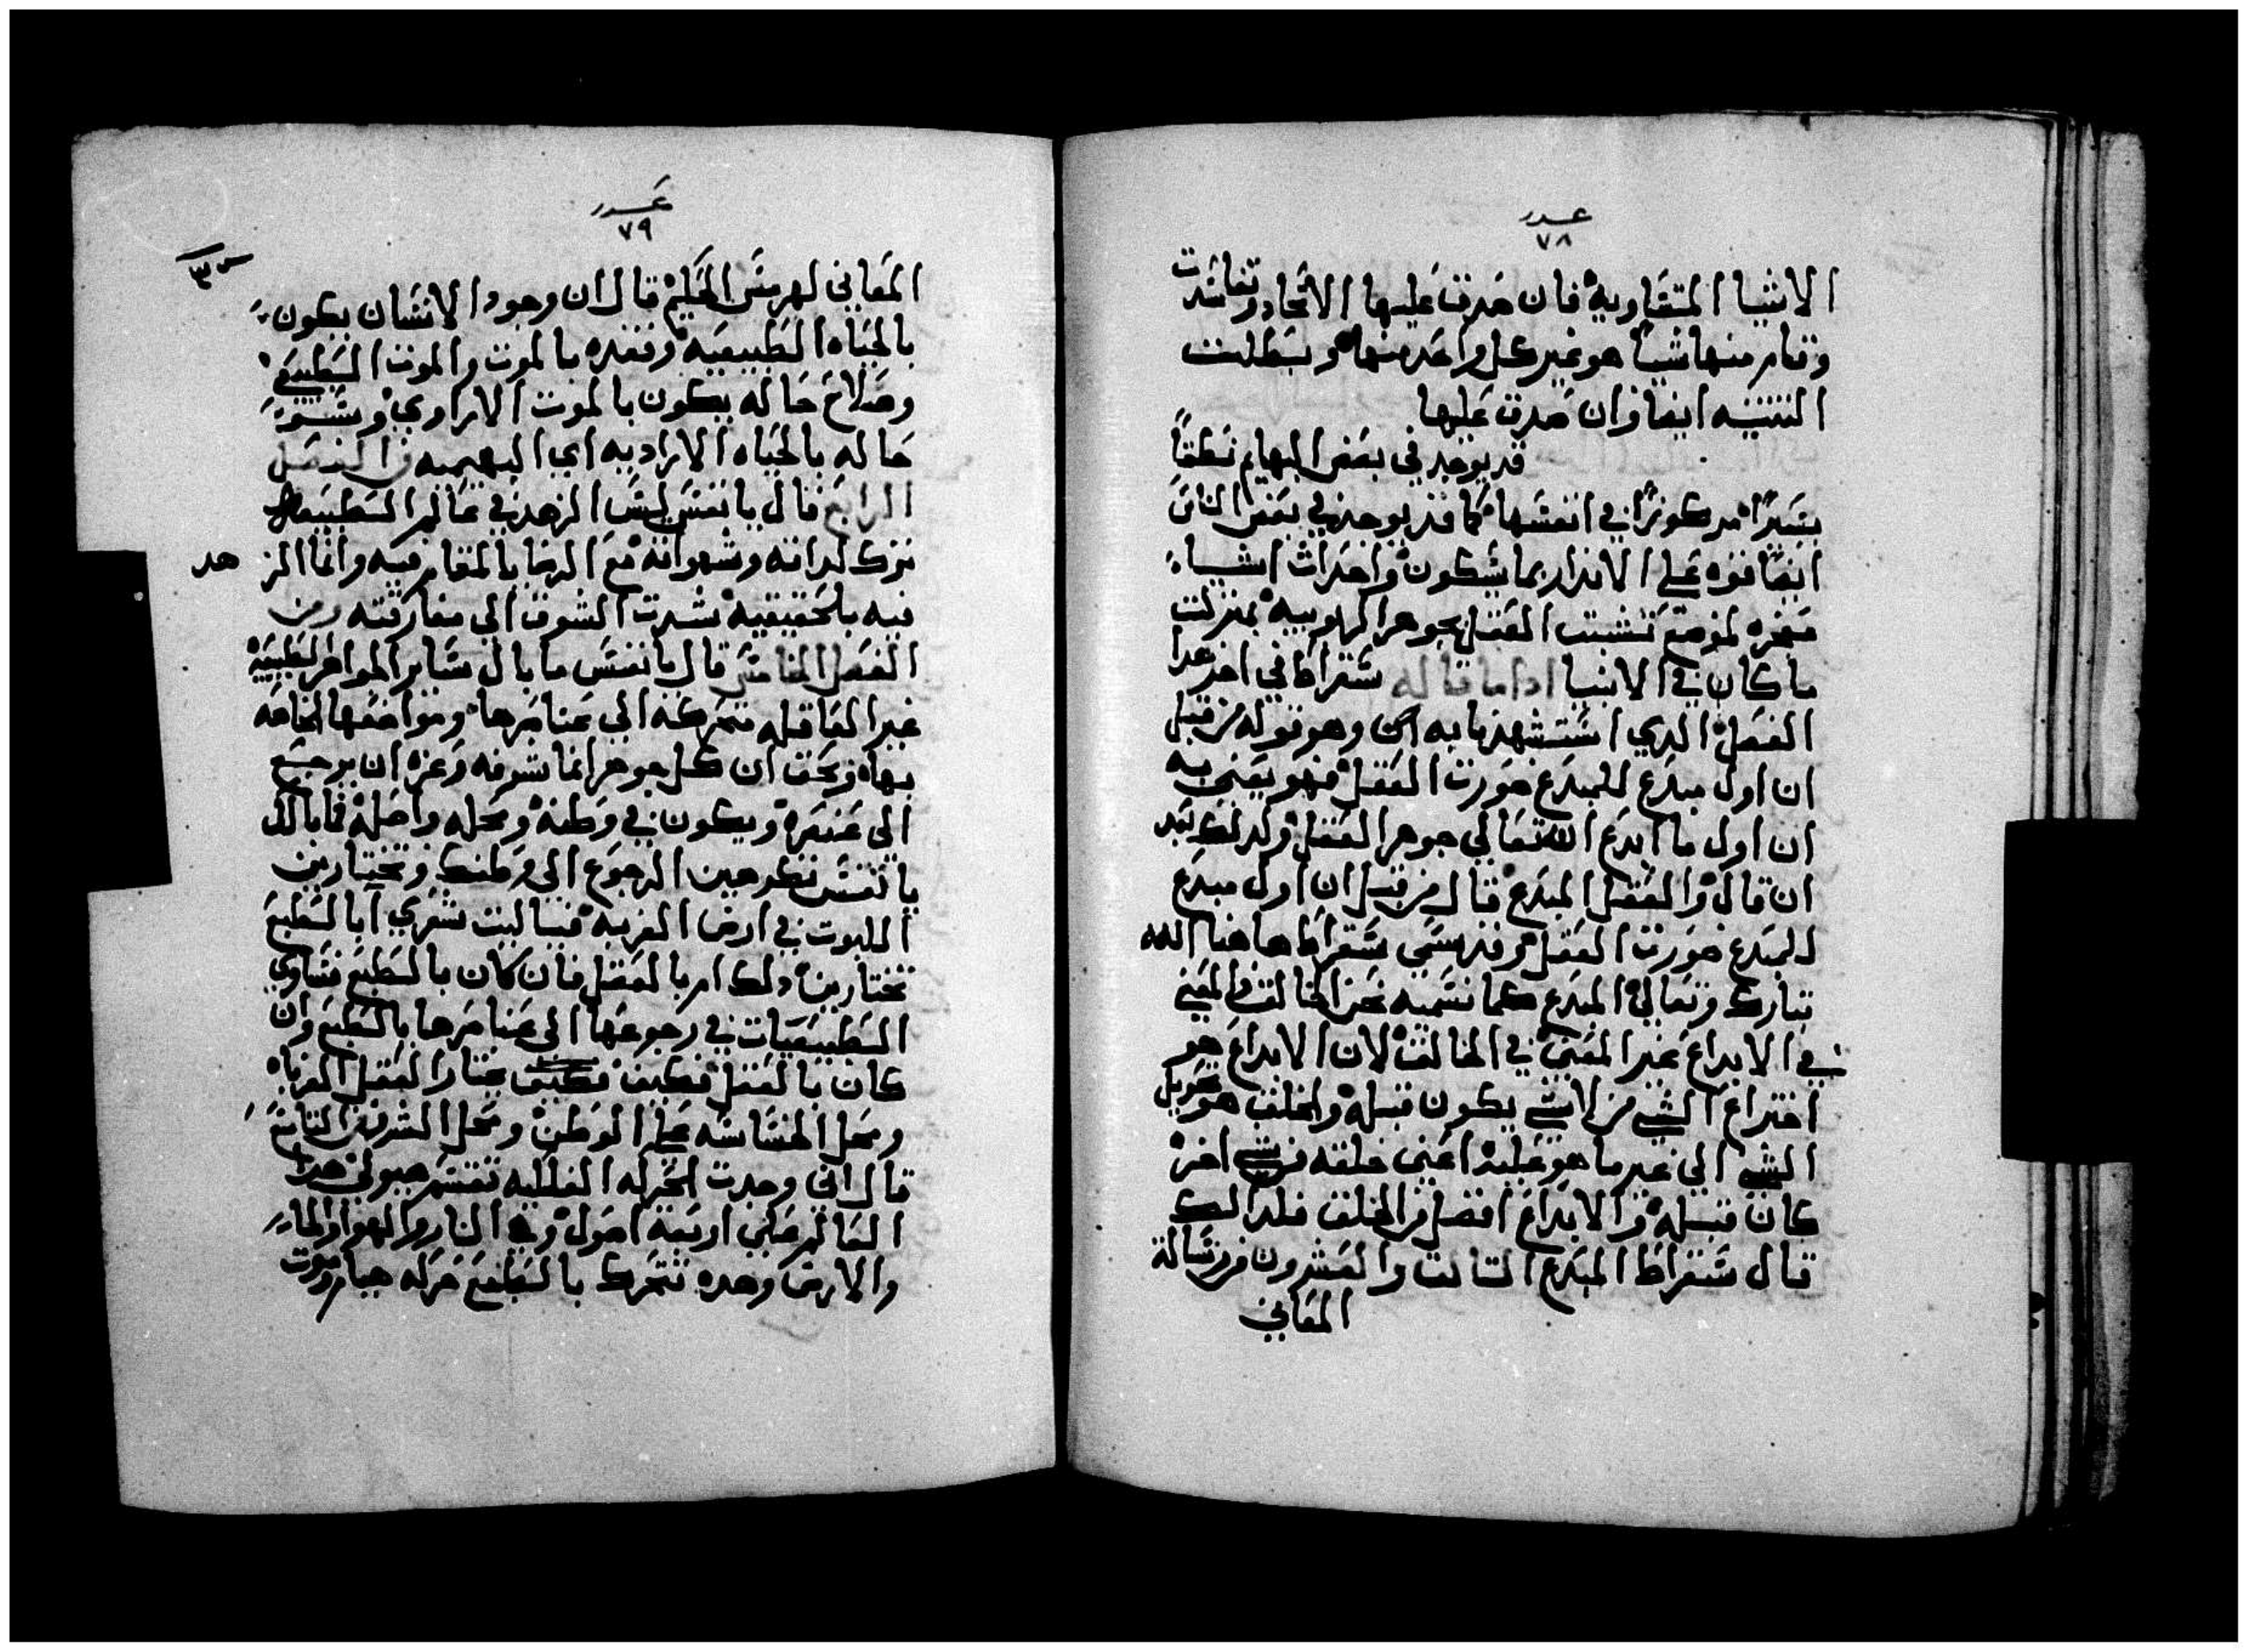 عدد
٧٨
الاشيا المتقاويه فان صدق عليها الاتحاد وتفاسدت
وقام منها شياً هو غير كل واحد منها وبطلت
التثنيه ايضا وان صدق عليها
قد يوجد في بعض البهايم نطقاً
يسيراً مركوزاً في انفسها كما قد يوجد في بعض الناس
ايضا قوه على الانذار بما سيكون واحداث اشياء
لموضع تشبث العقل بجوهر بمنزلت
ما كان في الانبيا اداما قاله سقراط في اخر عدا
الفصل الدي استشهدنا به وهو قوله من قبل
ان اول مبدع المبدع صورت العقل فهو يعني به
ان اول ما ابدع الله تعالي جوهر العقل ولدلك بعد
ان قال والعقل المبدع قال من قبل ان اول مبدع
المبدع صورت العقل وقد سمي سقراط هاهنا الله
تبارك وتعالي المبدع كما نسميه نحن الخالق والمعني
في الابداع غير المعني في الخالق لان الابداع هو
اختراع الشي من لا شي يكون قبله والخلق هو تحويل
الشي الي غير ما هو عليه اعني خلقه من شي اخر
كان قبله والابداع افضل من الخلق فلدالك
قال سقراط المبدع التالت والعشرون من رسالة
المعاني
عدد
٧٩
المعاني لهرمس الحكيم قال ان وجود الانسان يكون
بالحياه الطبيعيه وفقده بالموت والموت الطبيعي
وصلاح حاله يكون بالموت الارادي
حاله بالحياه الاراديه اي البهيميه الفصل
الرابع قال يا نفس ليس الزهد في عالم الطبيعه
ترك لداته وشهواته مع الرضا بالمقام فيه وانما الز
هد
فيه بالحقيقيه شدت الشوق الي مفارقته ومن
الفصل الخامس قال يا نفس ما بال ساير الجواهر الطبيعيه
غير العاقله متحركه الي عناصرها ومواضعها الخاصه
بها وبحق ان كل جوهر انما شرفه وعزه ان يرجع
الى عنصره ويكون في وطنه ومحله واصله فما بالك
يا نفس تكرهين الرجوع الى وطنك وتختارين
اللبوت في ارض الغربه فيا ليت شعري ابالطبع
تختارين دلك ام بالعقل فان كان بالطبع فساوي
الطبيعيات في رجوعها الى عناصرها بالطبع وان
كان بالعقل فكيف يختار العقل الغربه
ومحل الخساسه على الوطن ومحل الشرف من التاسع
قال اني وجدت الحركه الفلكيه تقسم هيولى هدا
العالم على اربعة اصول وهي النار والهوا والما
والارض وهده تتحرك بالطبع حركه حياه وموت